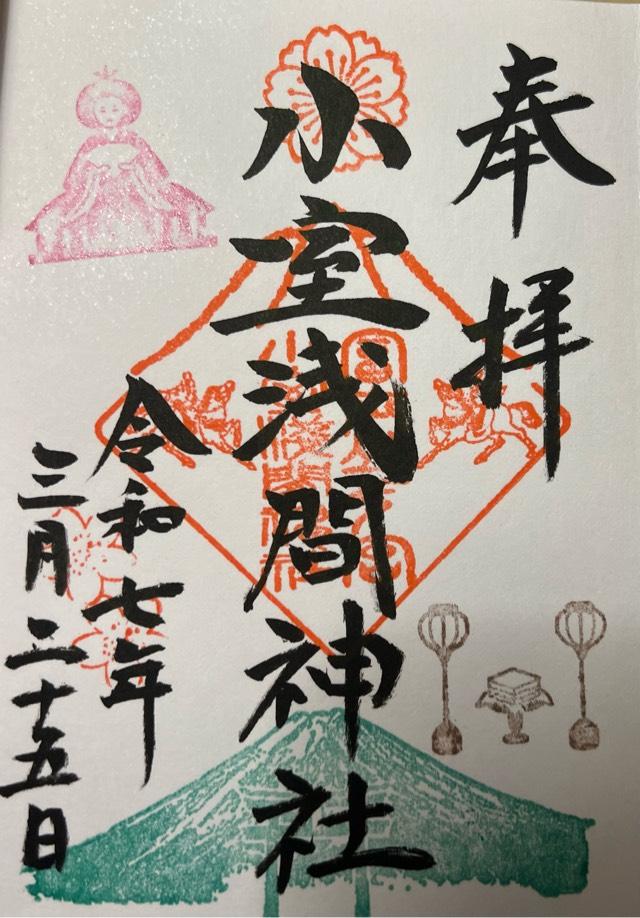 奉拝
小室浅間神社
令和七年
三月二十五日